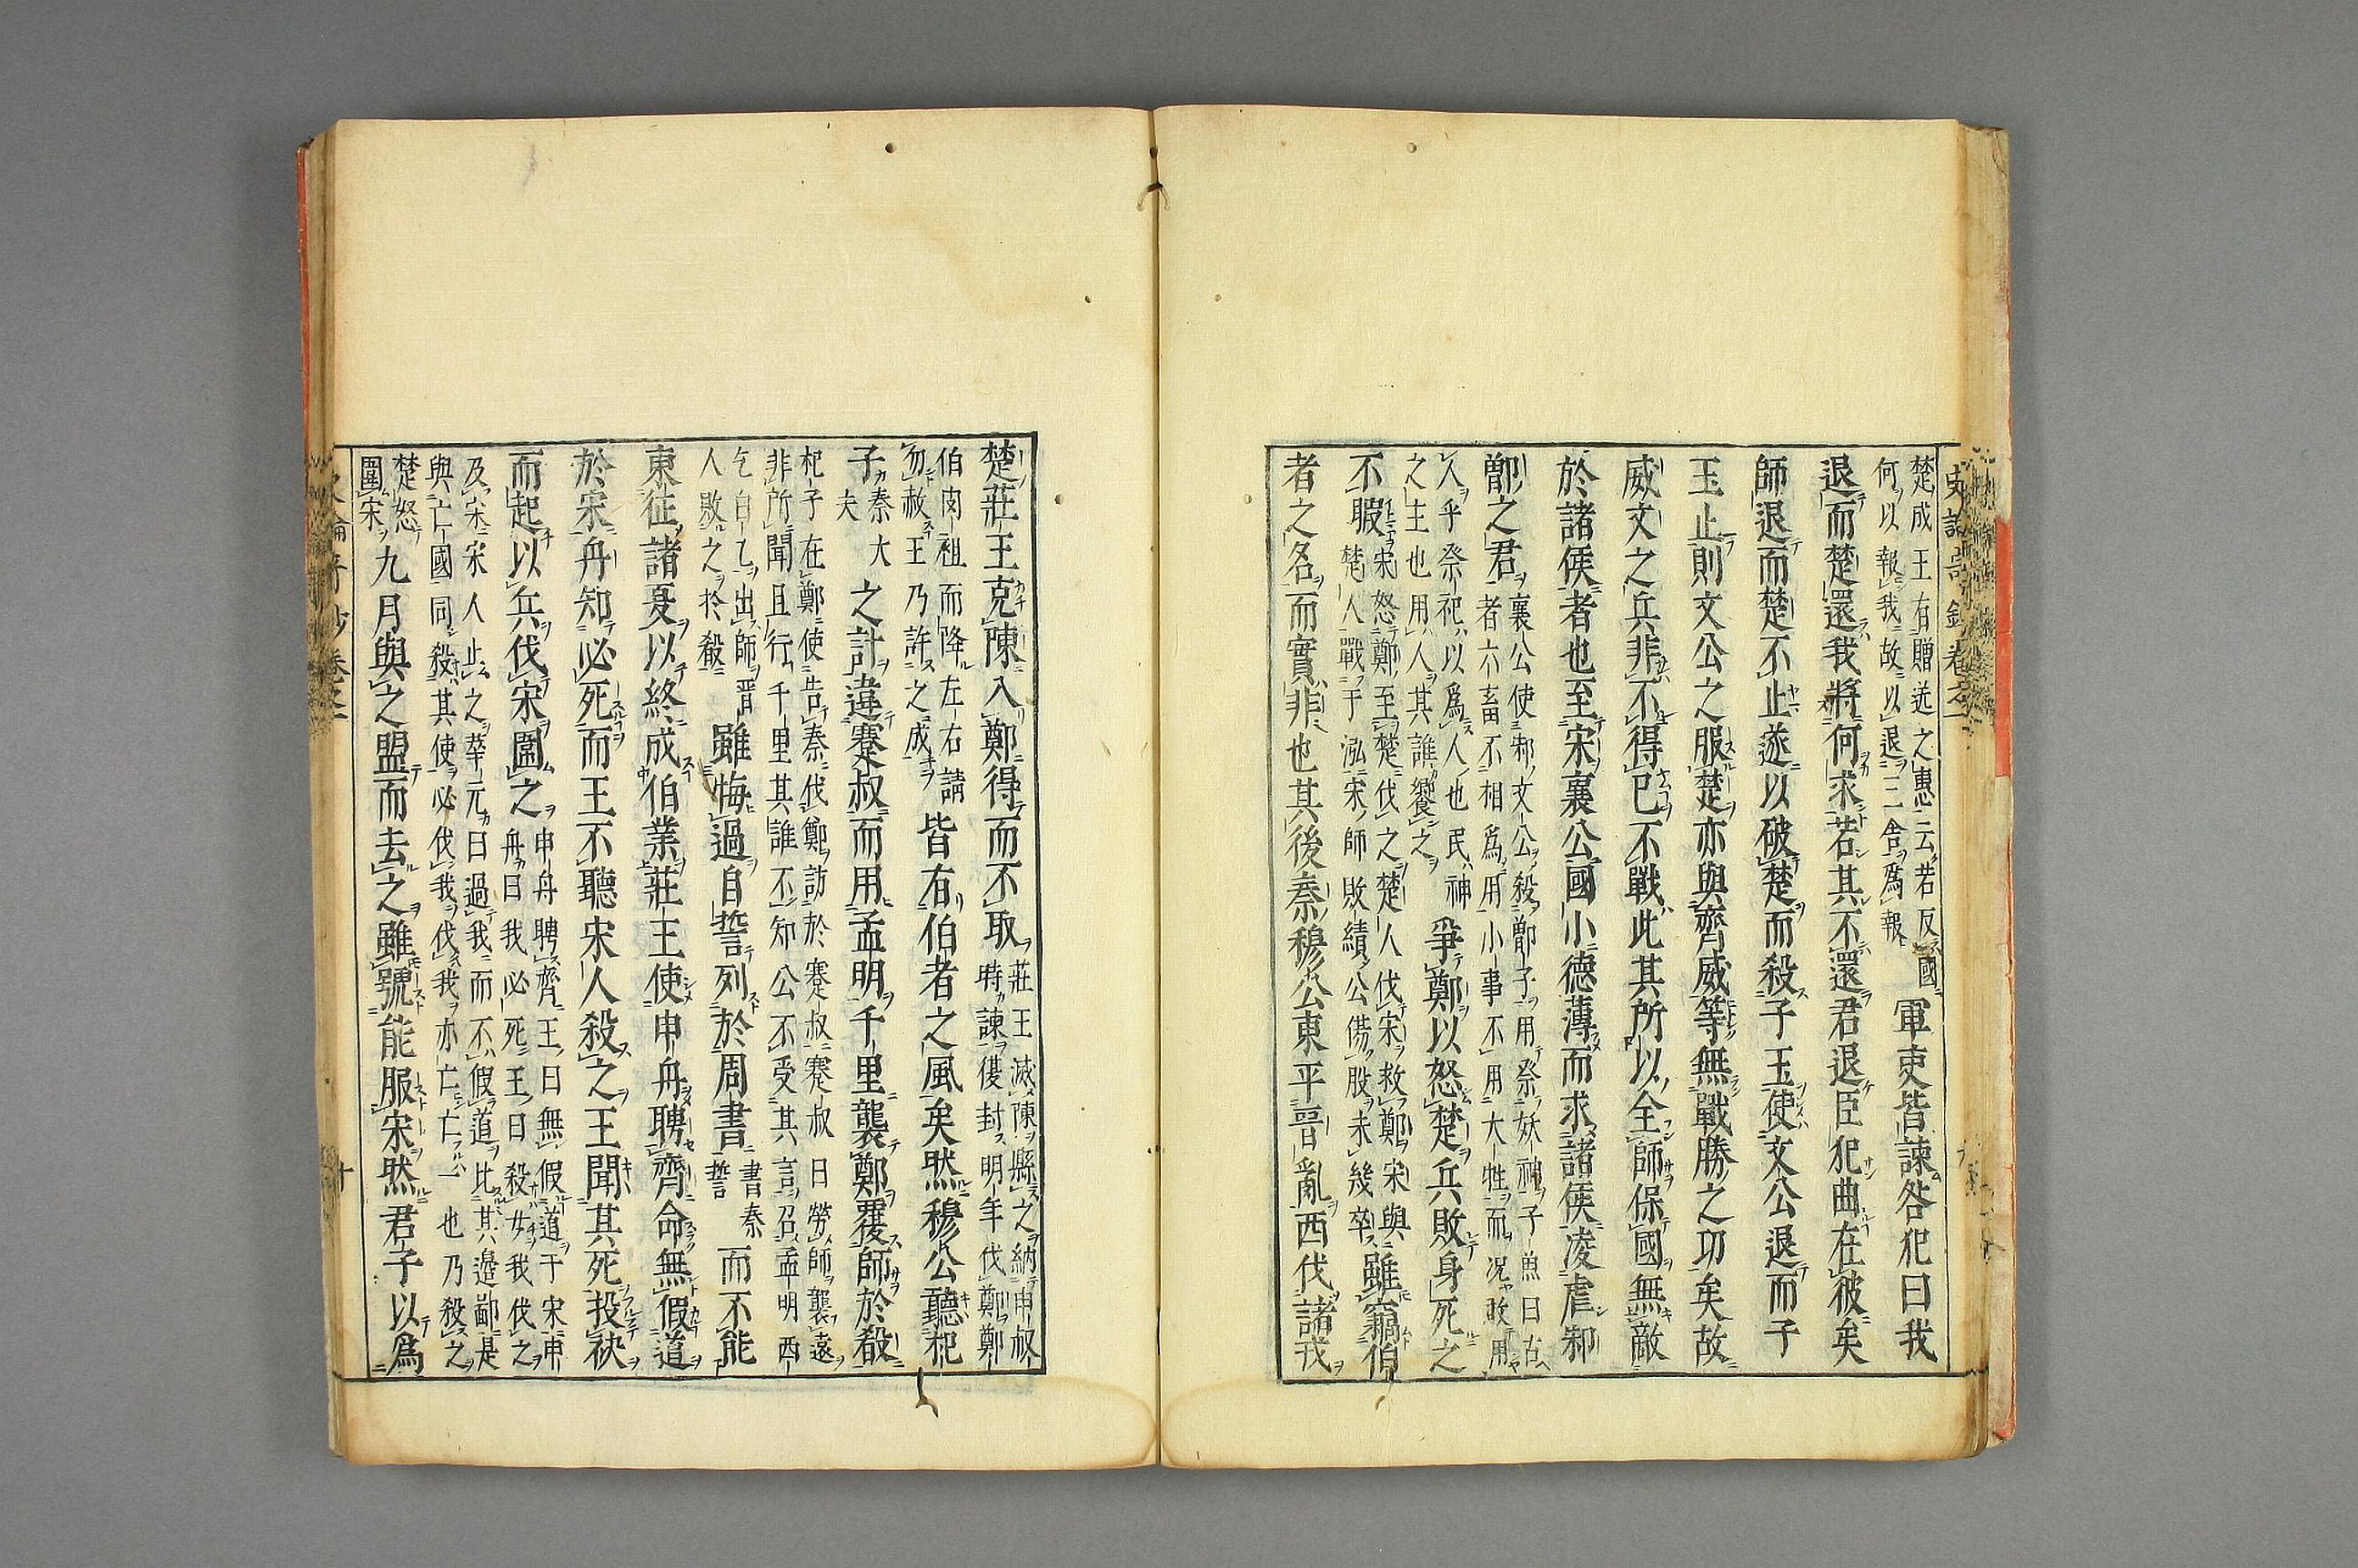 史論奇鈔卷之二
楚成王有贈送之惠云若反國
何以報我故以退三舍爲報
軍吏皆諫咎犯曰我
退而楚還我將何求若其不還君退臣犯曲在彼矣
師退而楚不止遂以破楚而殺子玉使文公退而子
玉止則文公之服楚亦與齊威等無戰勝之功矣故
威文之兵非不得已不戰此其所以全師保國無敵
於諸侯者也至宋襄公國小德薄而求諸侯凌虐邾
鄫之君
襄公使邾文公殺鄫子用祭妖神子魚曰古
者六畜不相爲用小事不用大牲而况敢用
人乎祭祀以爲人也民神
之主也用人其誰饗之
爭鄭以怒楚兵敗身死之
不暇
宋怒鄭至楚伐之楚人伐宋救鄭宋與
楚人戰于泓宋師敗績公傷股未幾卒
雖竊伯
者之名而實非也其後秦穆公東平晉亂西伐諸戎
楚莊王克陳入鄭得而不取
莊王滅陳縣之納申叔
時諫復封明年伐鄭鄭
伯肉袒而降左右請
勿赦王乃許之成
皆有伯者之風矣然穆公聽杞
子
秦大
夫
之計違蹇叔而用孟明千里襲鄭覆師於殽
杞子在鄭使告秦伐鄭訪於蹇叔蹇叔曰勞師襲遠
非所聞且行千里其誰不知公不受其言召孟明西
乞白乙出師晉
人敗之於殽
雖悔過自誓列於周書
書秦
誓
而不能
東征諸夏以終成伯業莊王使申舟聘齊命無假道
於宋舟知必死而王不聽宋人殺之王聞其死投袂
而起以兵伐宋圍之
申舟聘齊王曰無假道于宋申
舟曰我必死王曰殺女我伐之
及宋宋人止之華元曰過我而不假道比其邉鄙是
與亡國同殺其使必伐我伐我亦亡亡一也乃殺之
楚怒
圍宋
九月與之盟而去之雖號能服宋然君子以爲
十